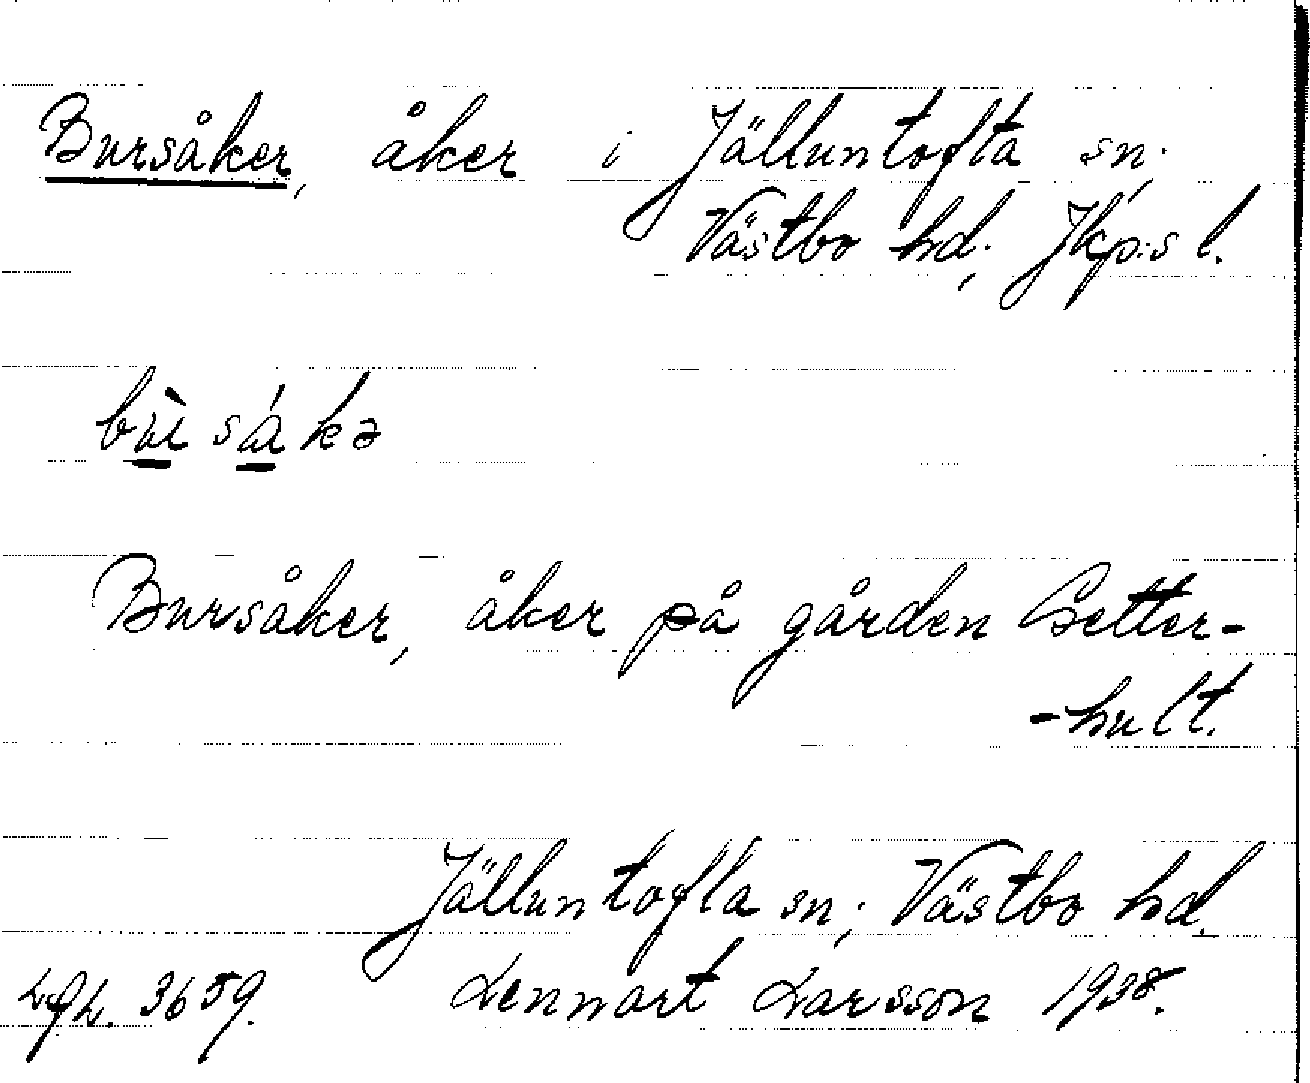 Bursåker, åker i Jälluntofta sn.
Västbo hd; Jkp:s l.
bùsákə
Bursåker, åker på gården Getter-
-hult.
Jälluntofta sn; Västbo hd.
3659. Lennart Larsson 1938.